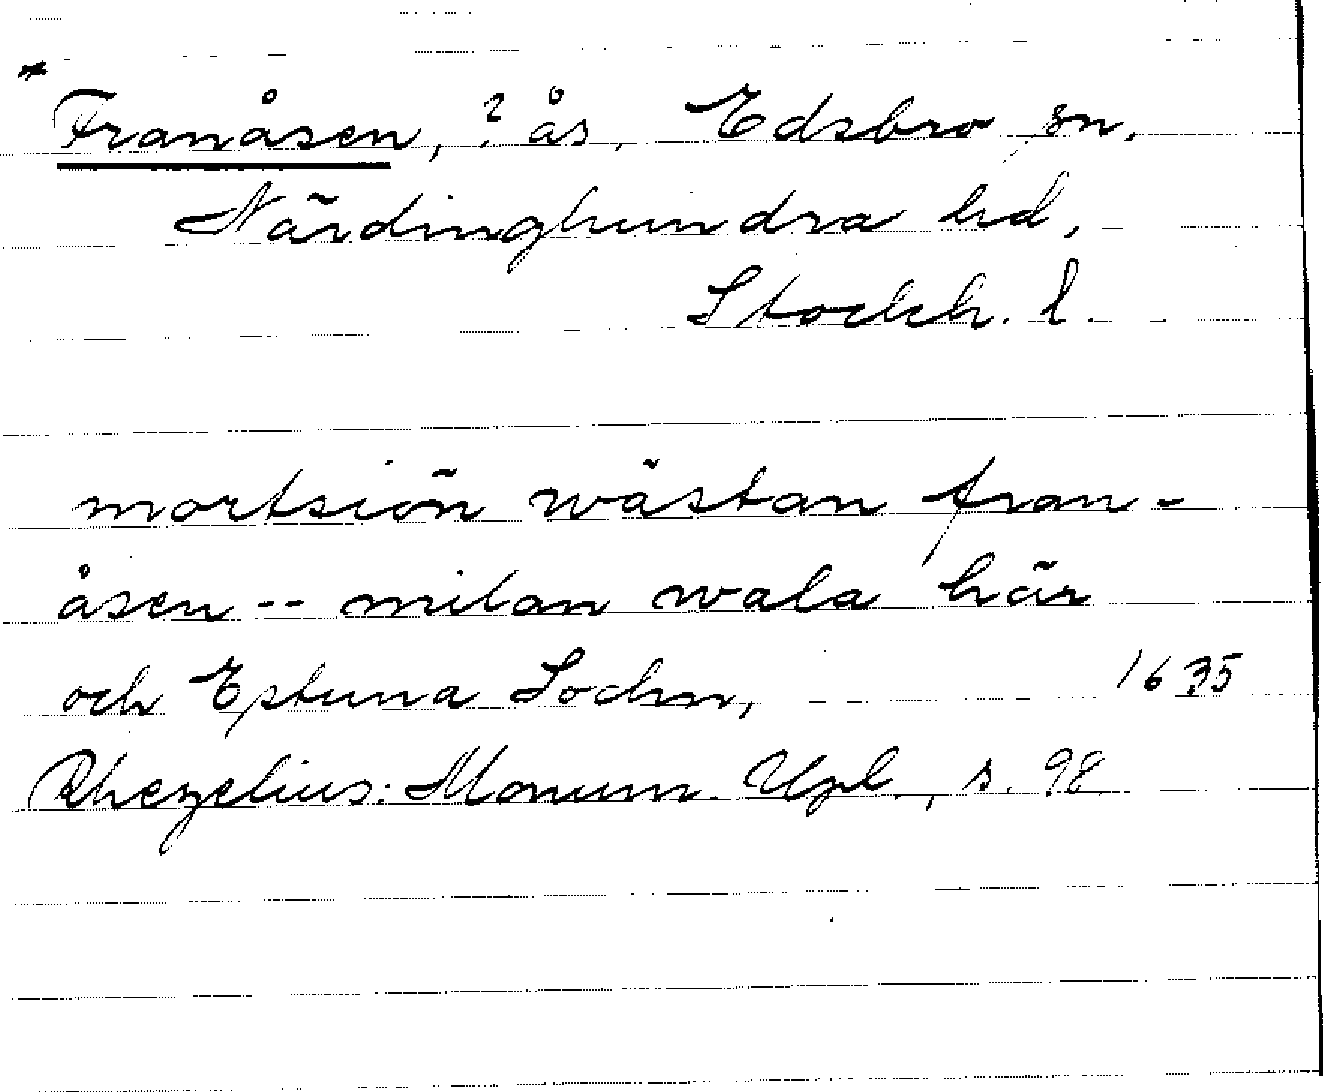 * Franåsen, ? ås, Edsbro sn,
Närdinghundra hd,
Stockh. l.
mortsiön wästan fran-
åsen -- milan wala här
och Eptuna Sochn, 1635
Rhezelius: Monum. Upl., s. 98